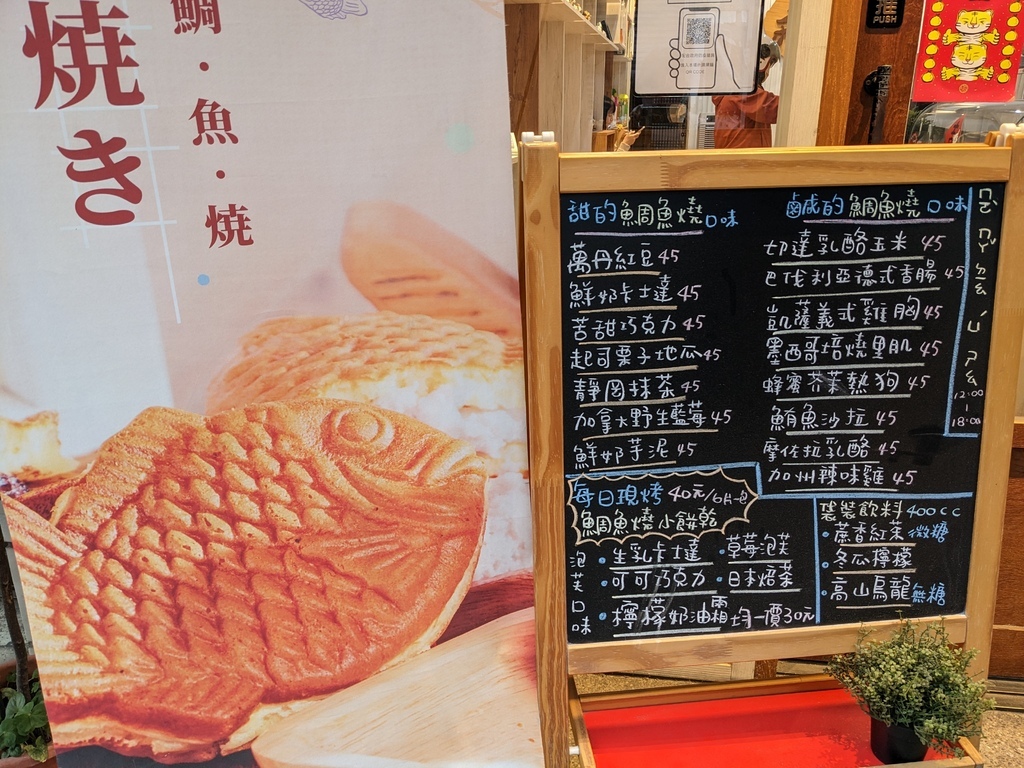 焼き
鯛・魚・焼
推
PUSH
甜的鯛魚燒口味
萬丹紅豆45
鮮奶卡士達45
苦甜巧克力45
起司栗子地瓜45
靜岡抹茶45
加拿大野生藍莓45
鮮奶芋泥45
鹹的鯛魚燒口味
切達乳酪玉米45
巴伐利亞德式香腸45
凱薩義式雞胸45
墨西哥培燒里肌45
蜂蜜芥茉熱狗45
鮪魚沙拉45
摩佐拉乳酪45
加州辣味雞45
12:00
|
18:00
每日現烤40元/6片一包
鯛魚燒小餅乾
泡芙口味
・生乳卡士達
・草莓泡芙
・可可巧克力
・日本焙茶
・檸檬奶油霜
均一價30元
袋裝飲料400cc
・蔗香紅茶微糖
・冬瓜檸檬
・高山烏龍無糖